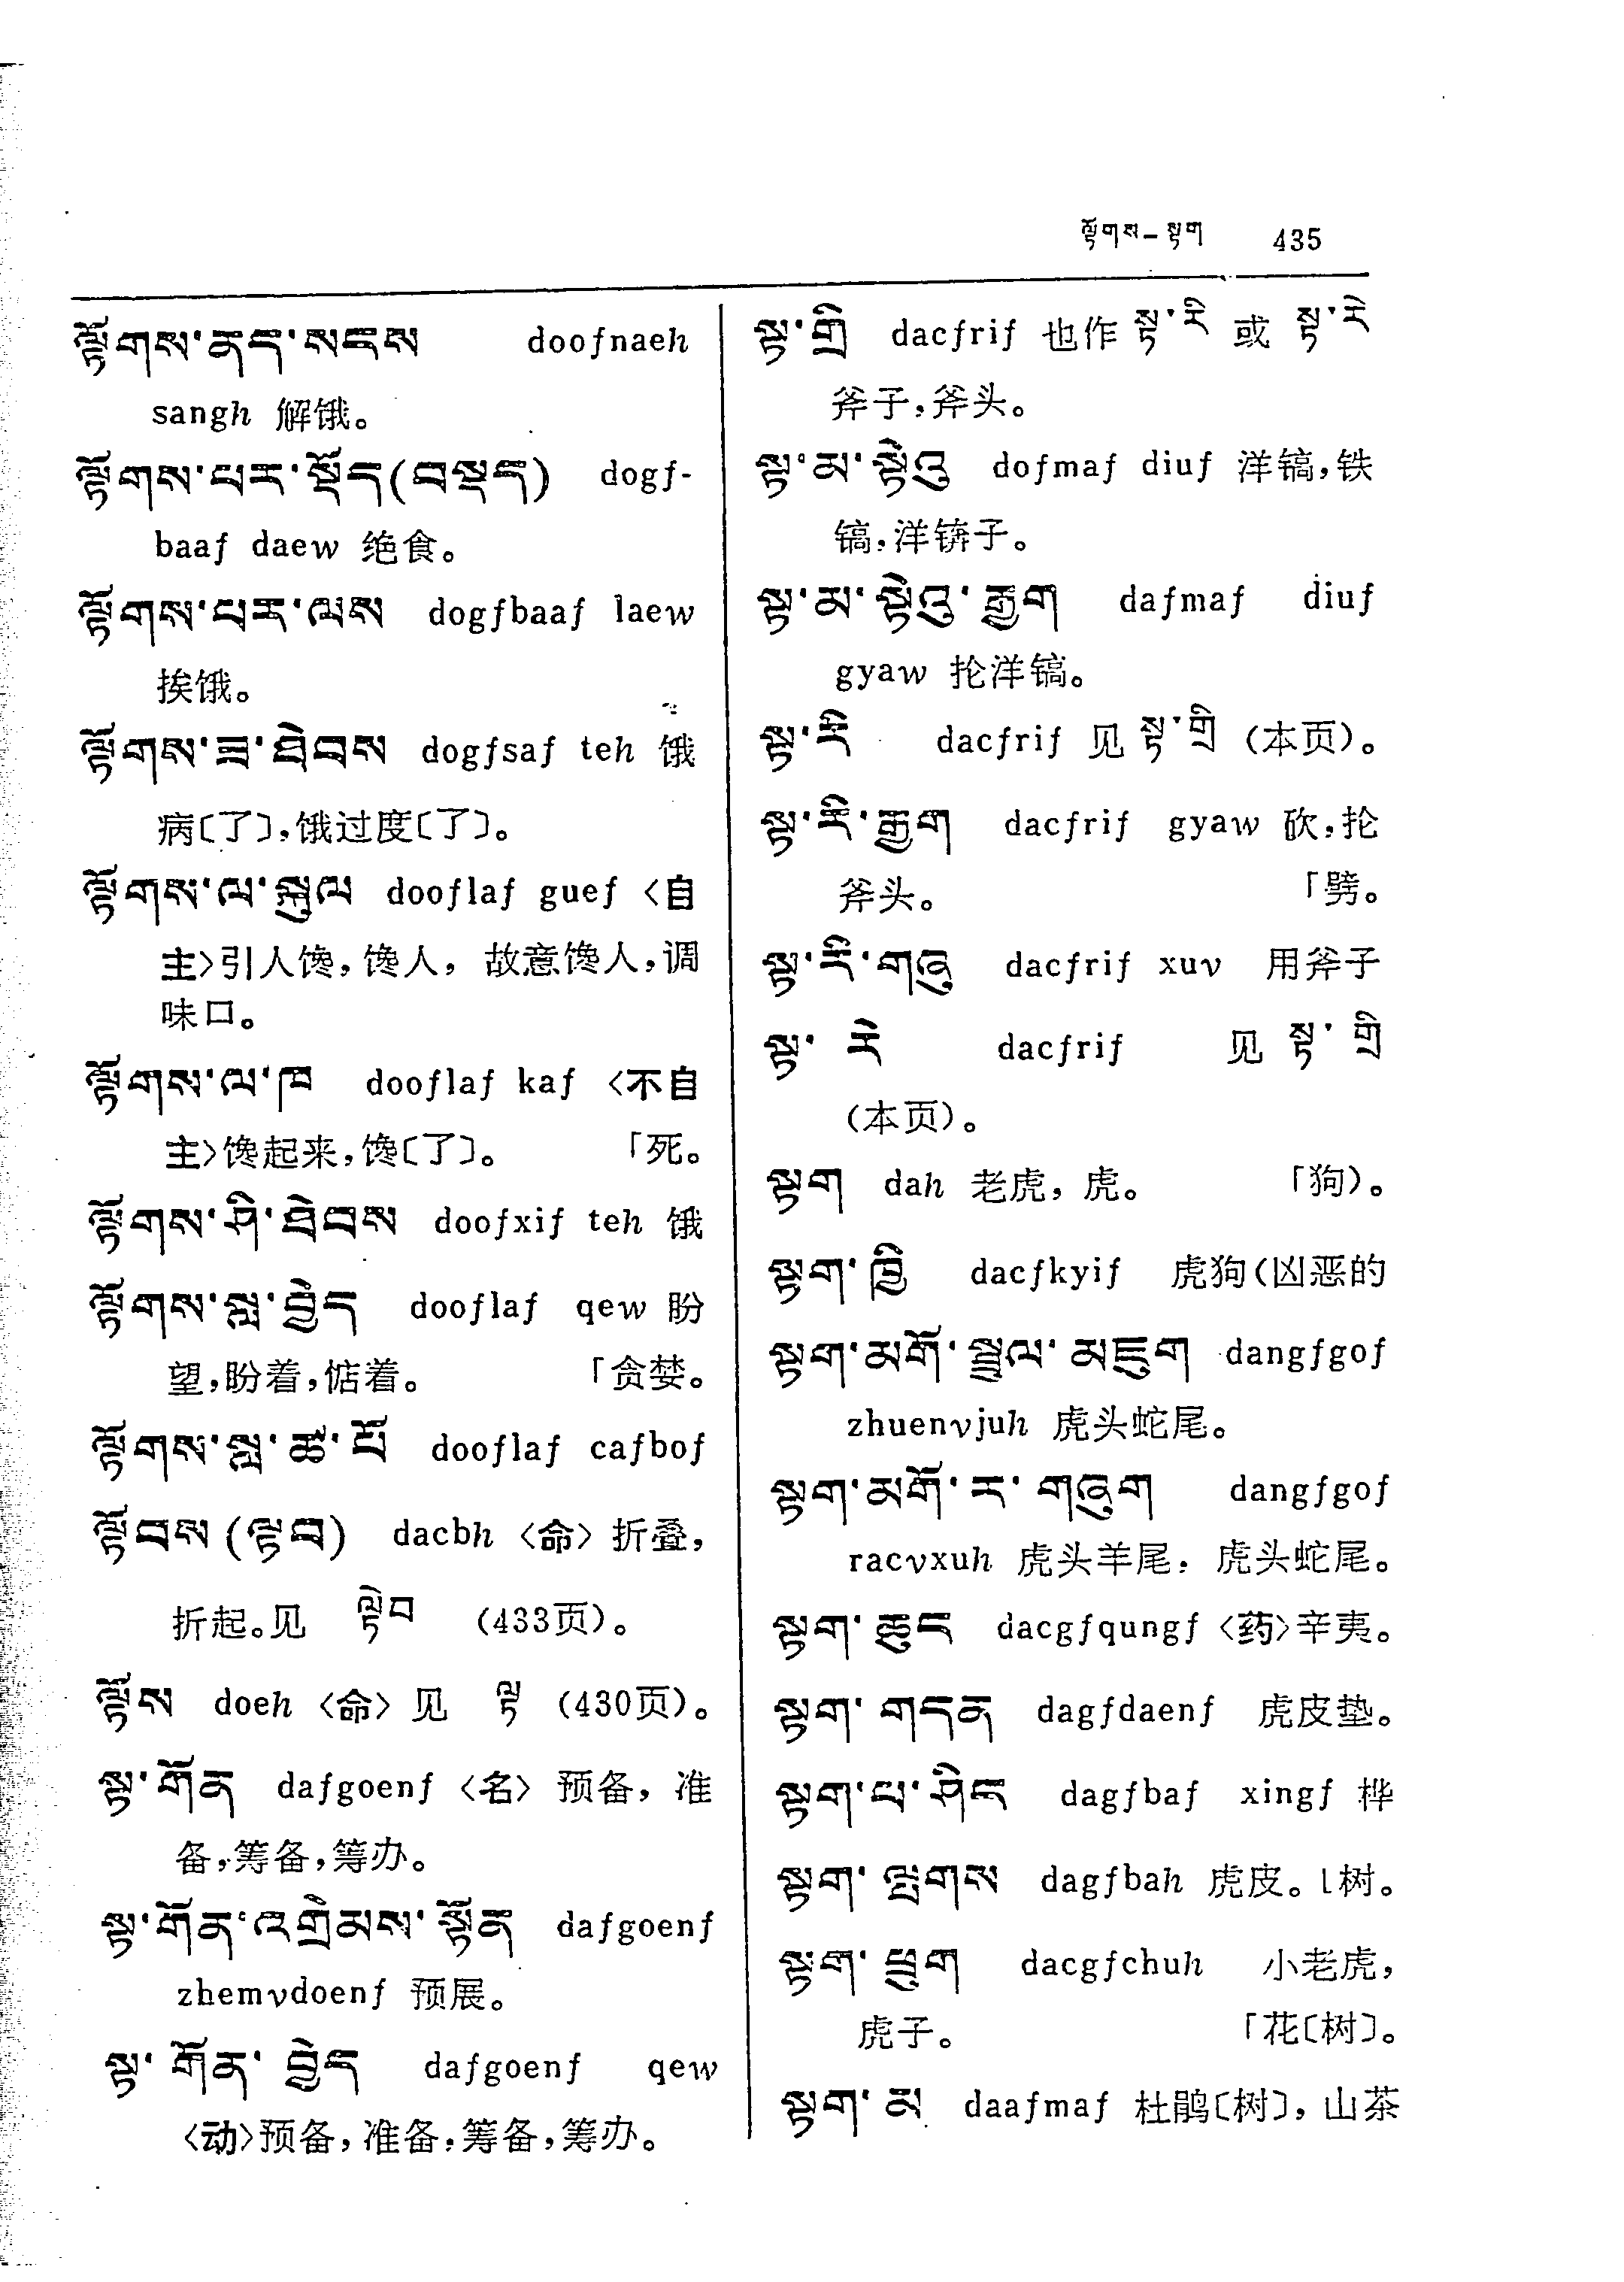 ལྟོགས–སྟག 435
ལྟོགས་ནད་སངས doofnaeh
sangh 解饿。
ལྟོགས་པར་སྡོད(བསྡད) dogf-
baaf daew 绝食。
ལྟོགས་པར་ལས dogfbaaf laew
挨饿。
ལྟོགས་ཟ་ཐེབས dogfsaf teh 饿
病〔了〕,饿过度〔了〕。
ལྟོགས་ལ་སྐུལ dooflaf guef 〈自
主〉引人馋, 馋人, 故意馋人,调
味口。
ལྟོགས་ལ་ཁ dooflaf kaf 〈不自
主〉馋起来,馋〔了〕。 「死。
ལྟོགས་ཤི་ཐེབས doofxif teh 饿
ལྟོགས་སླ་བྱེད dooflaf qew 盼
望,盼着,惦着。 「贪婪。
ལྟོགས་སླ་ཚ་པོ dooflaf cafbof
ལྟོབས(ལྟབ) dacbh 〈命〉折叠,
折起。见 ལྟེབ (433页)。
ལྟོས doeh 〈命〉见 ལྟ (430页)。
སྟ་གོན dafgoenf 〈名〉 预备, 准
备,筹备,筹办。
སྟ་གོན་འགྲེམས་སྟོན dafgoenf
zhemvdoenf 预展。
སྟ་གོན་བྱེད dafgoenf qew
〈动〉预备,准备,筹备,筹办。
སྟ་གྲི dacfrif 也作 སྟ་རི 或 སྟ་རེ
斧子,斧头。
སྟ་མ་སྟེའུ dofmaf diuf 洋镐,铁
镐,洋锛子。
སྟ་མ་སྟེའུ་རྒྱག dafmaf diuf
gyaw 抡洋镐。
སྟ་རི dacfrif 见 སྟ་གྲི (本页)。
སྟ་རི་རྒྱག dacfrif gyaw 砍,抡
斧头。 「劈。
སྟ་རི་གཞུ dacfrif xuv 用斧子
སྟ་རེ dacfrif 见 སྟ་གྲི
(本页)。
སྟག dah 老虎, 虎。 「狗)。
སྟག་ཁྱི dacfkyif 虎狗(凶恶的
སྟག་མགོ་སྦྲུལ་མཇུག dangfgof
zhuenvjuh 虎头蛇尾。
སྟག་མགོ་ར་གཞུག dangfgof
racvxuh 虎头羊尾; 虎头蛇尾。
སྟག་ཆུང dacgfqungf 〈药〉辛夷。
སྟག་གདན dagfdaenf 虎皮垫。
སྟག་པ་ཤིང dagfbaf xingf 桦
སྟག་ལྤགས dagfbah 虎皮。 ⌊树。
སྟག་ཕྲུག dacgfchuh 小老虎,
虎子。 「花〔树〕。
སྟག་མ daafmaf 杜鹃〔树〕, 山茶